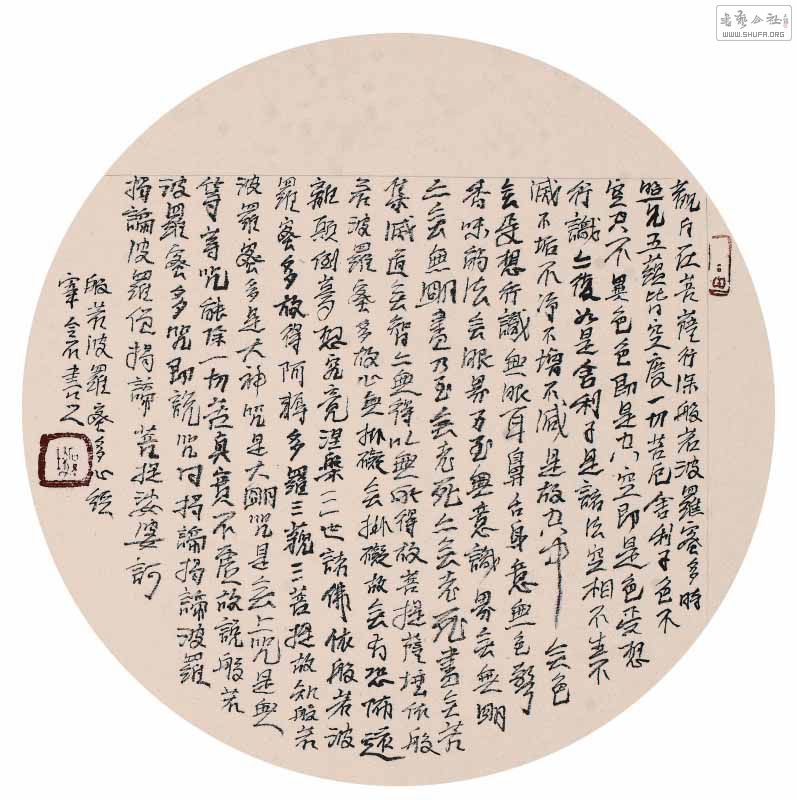 觀自在菩薩行深般若波羅蜜多時
照見五蘊皆空度一切苦厄舍利子色不
空空不異色色即是空空即是色受想
行識亦復如是舍利子是諸法空相不生不
滅不垢不淨不增不減是故空中無色
無受想行識無眼耳鼻舌身意無色聲
香味觸法無眼界乃至無意識界無無明
亦無無明盡乃至無老死亦無老死盡無苦
集滅道無智亦無得以無所得故菩提薩埵依般
若波羅蜜多故心無掛礙無掛礙故無有恐怖遠
離顛倒夢想究竟涅槃三世諸佛依般若波
羅蜜多故得阿耨多羅三藐三菩提故知般若
波羅蜜多是大神咒是大明咒是無上咒是無
等等咒能除一切苦真實不虛故說般若
波羅蜜多咒即說咒曰揭諦揭諦波羅
揭諦波羅僧揭諦菩提娑婆訶
般若波羅蜜多心經
書之
WWW.SHUFA.ORG